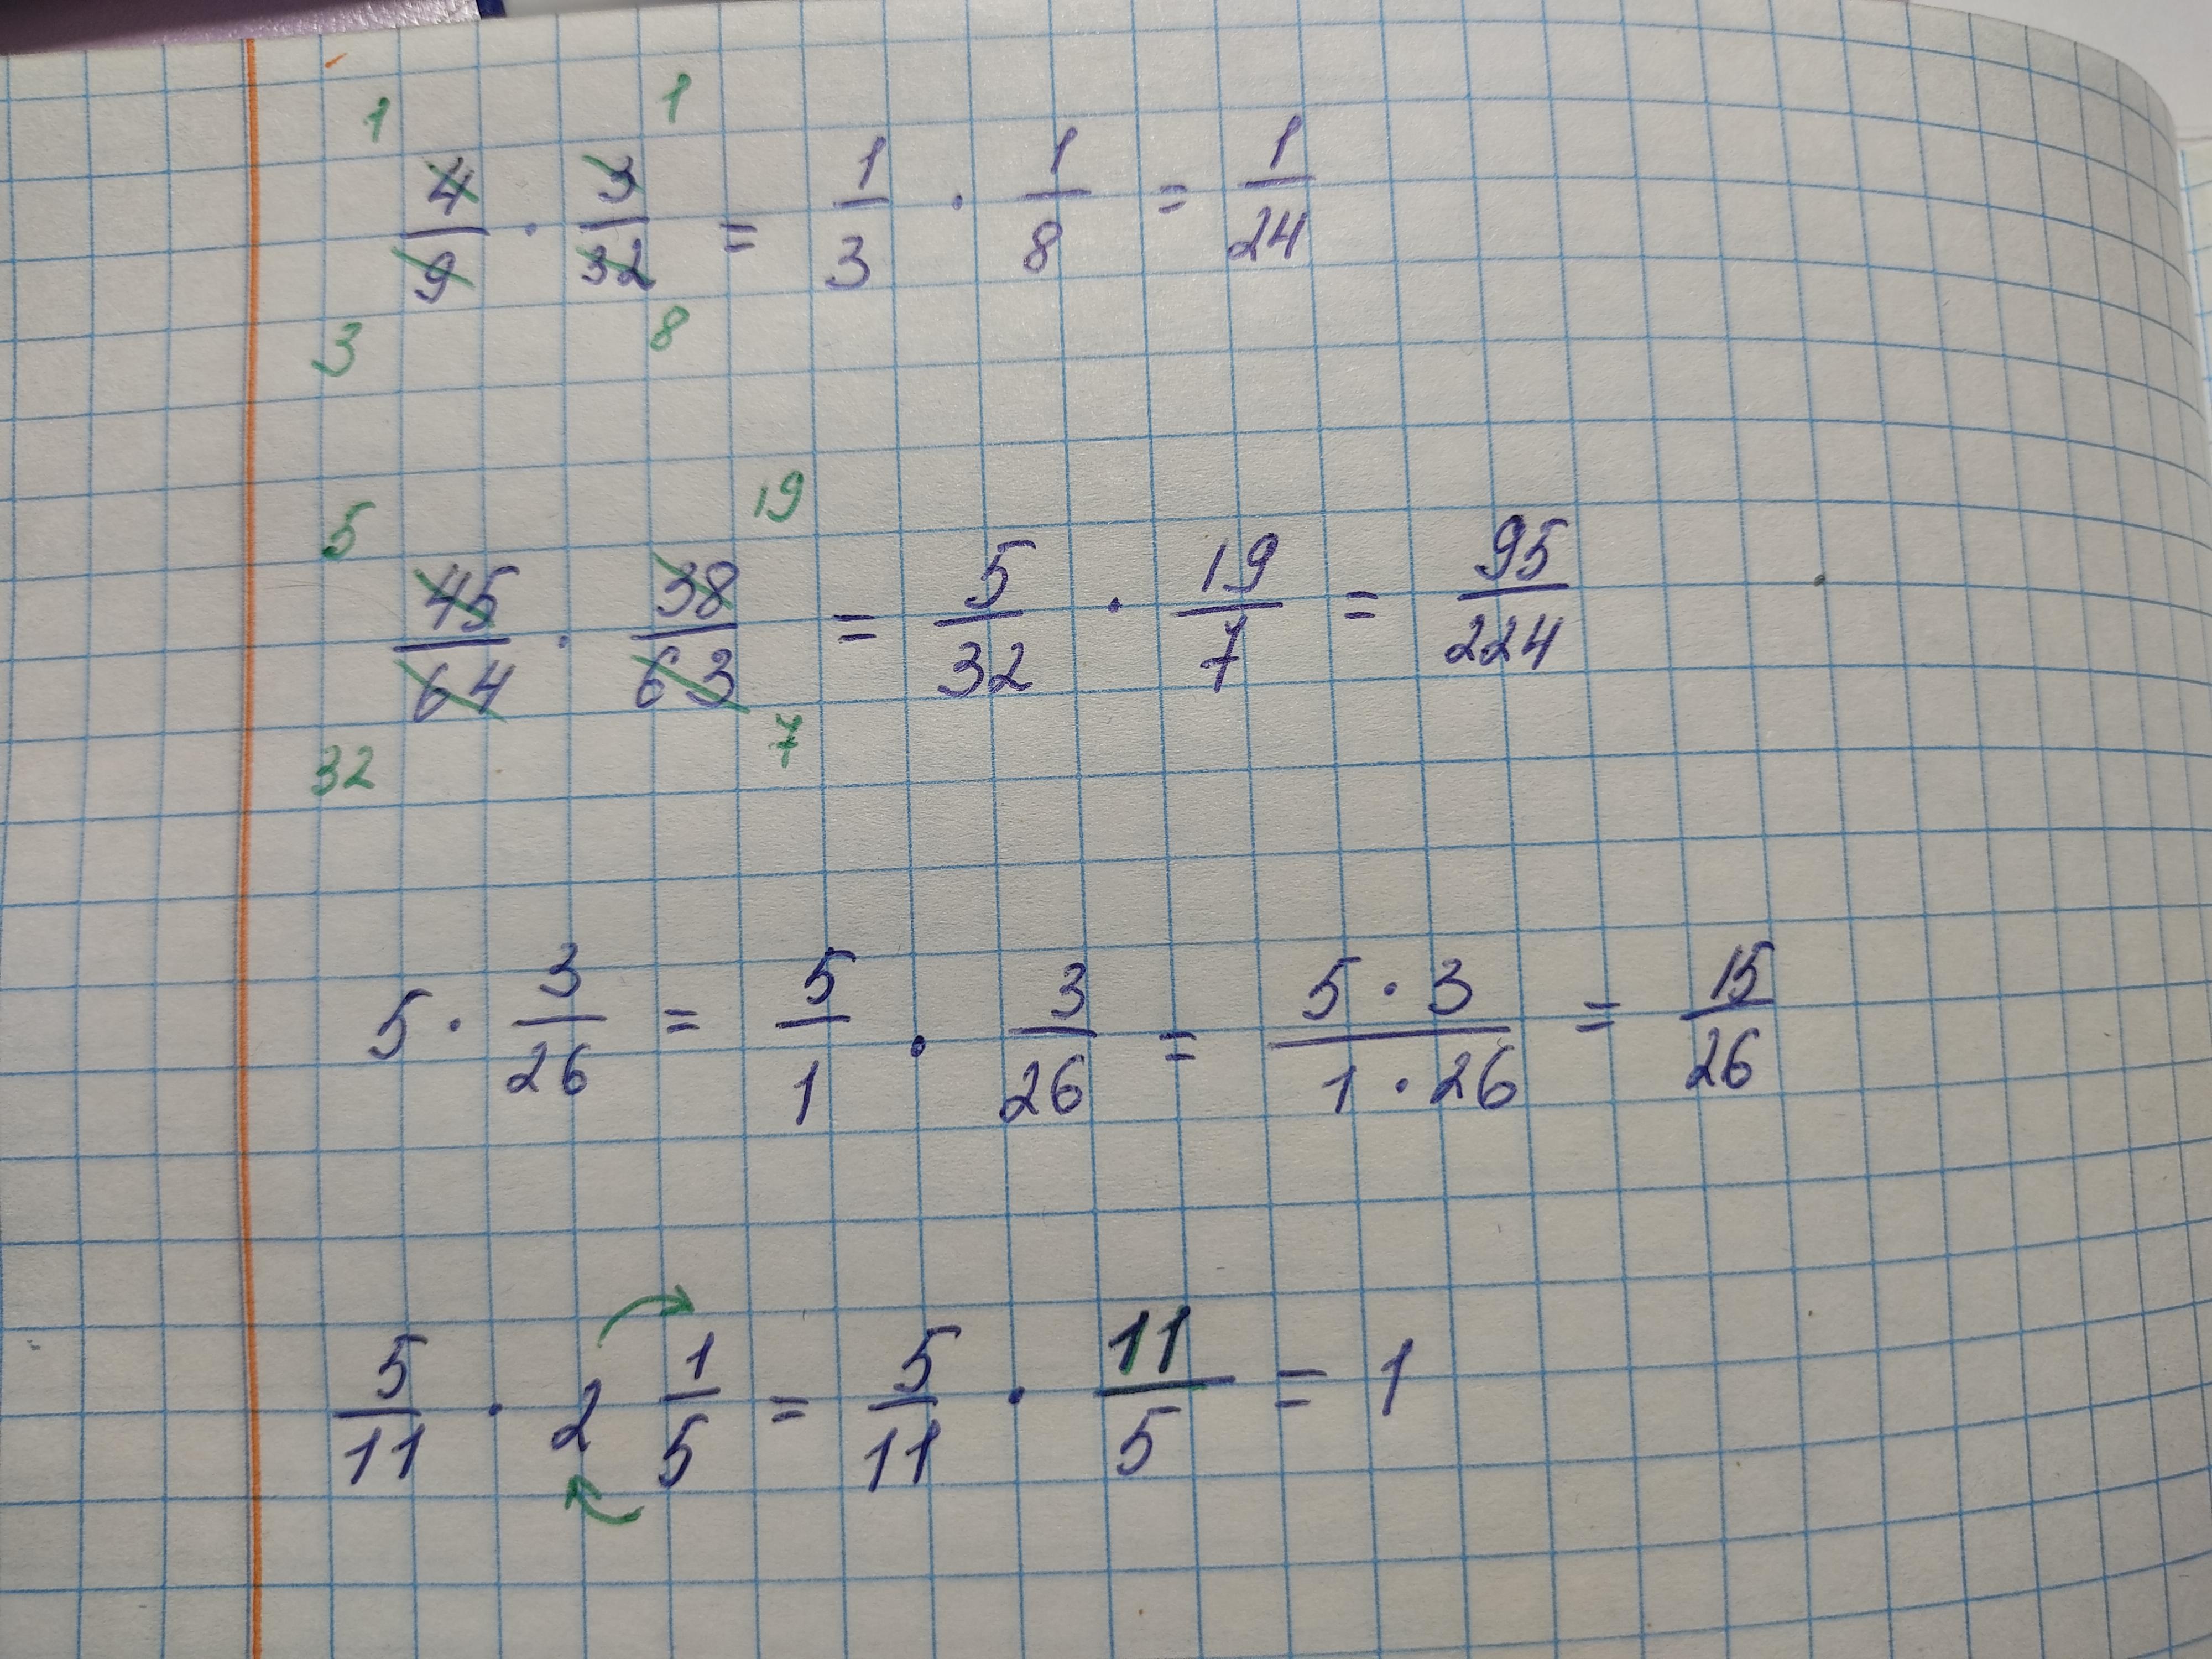 1 1
4/9 · 3/32 = 1/3 · 1/8 = 1/24
3 8
5 19
45/64 · 38/63 = 5/32 · 19/7 = 95/224
32 7
5 · 3/26 = 5/1 · 3/26 = 5 · 3/1 · 26 = 15/26
5/11 · 2 1/5 = 5/11 · 11/5 = 1